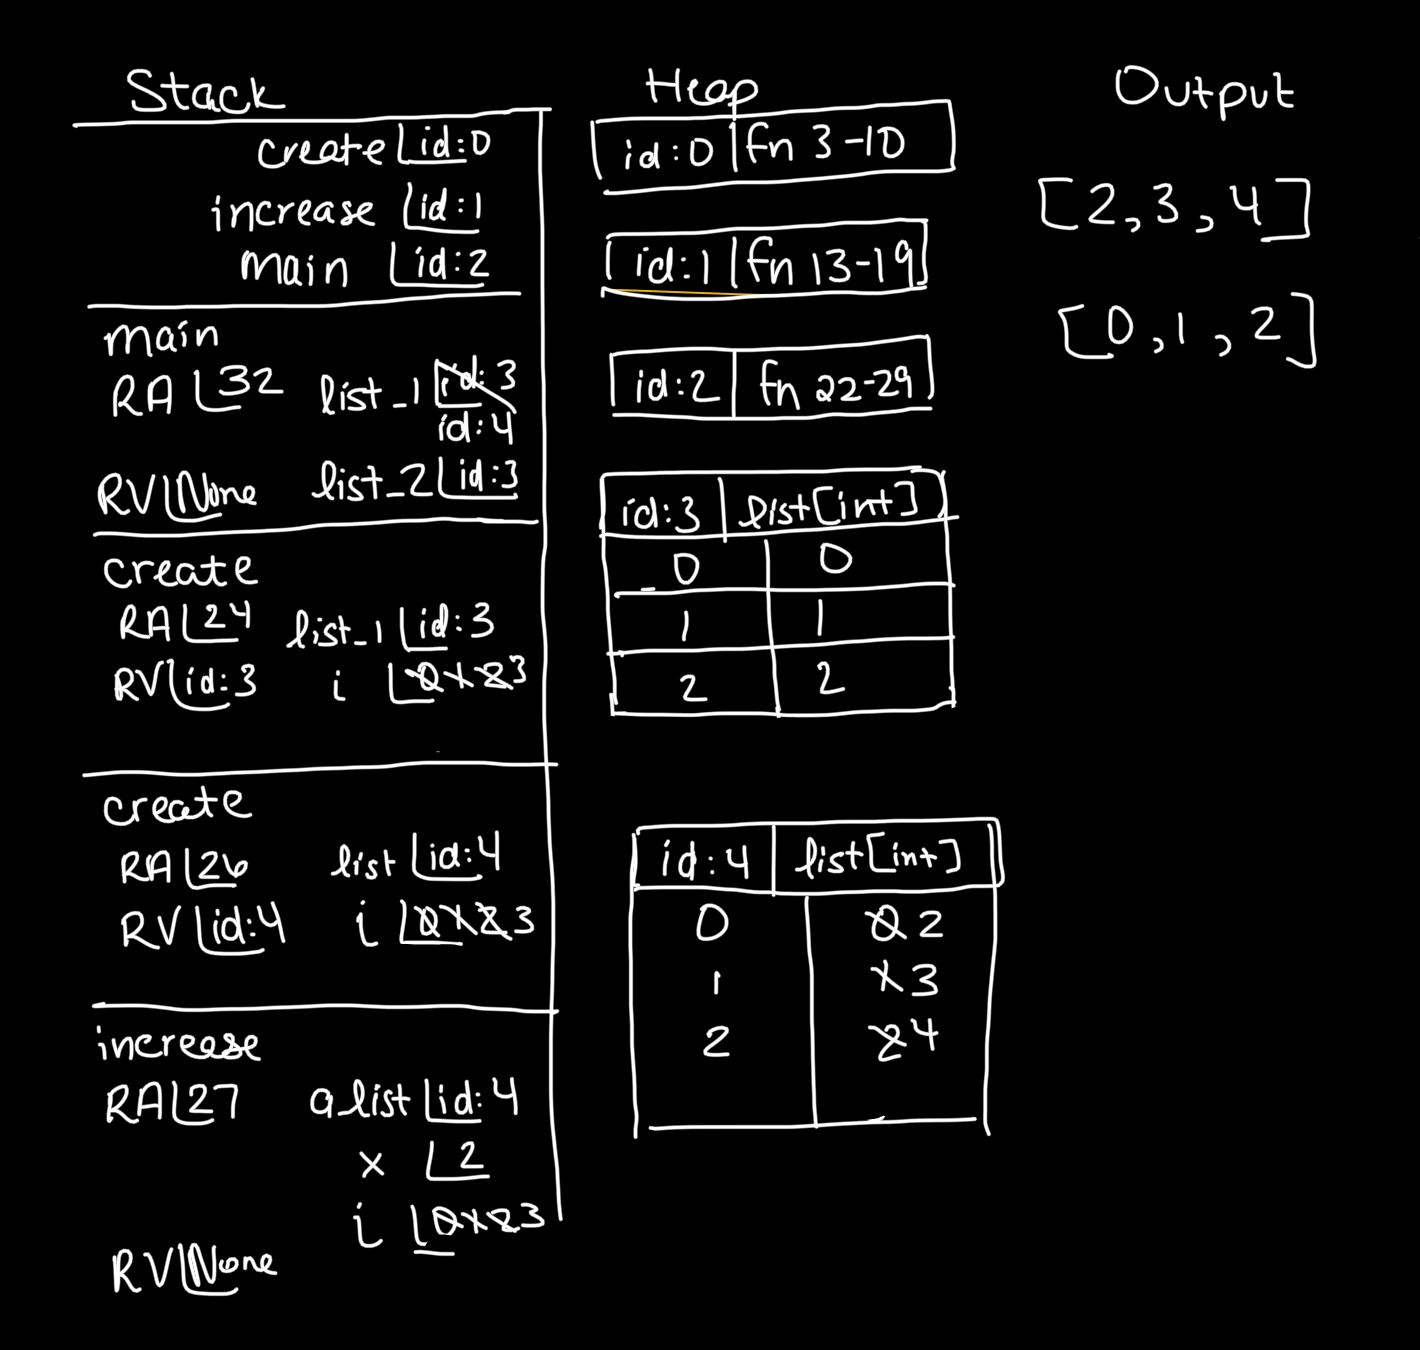 Stack
create id:0
increase id:1
main id:2
main
RA 32 list_1 id:3
id:4
RV None list_2 id:3
create
RA 24 list_1 id:3
RV id:3 i 0 1 2 3
create
RA 26 list id:4
RV id:4 i 0 1 2 3
increase
RA 27 a_list id:4
x 2
i 0 1 2 3
RV None
Heap
id:0 fn 3-10
id:1 fn 13-19
id:2 fn 22-29
id:3 list[int]
0 0
1 1
2 2
id:4 list[int]
0 0 2
1 1 3
2 2 4
Output
[2,3,4]
[0,1,2]